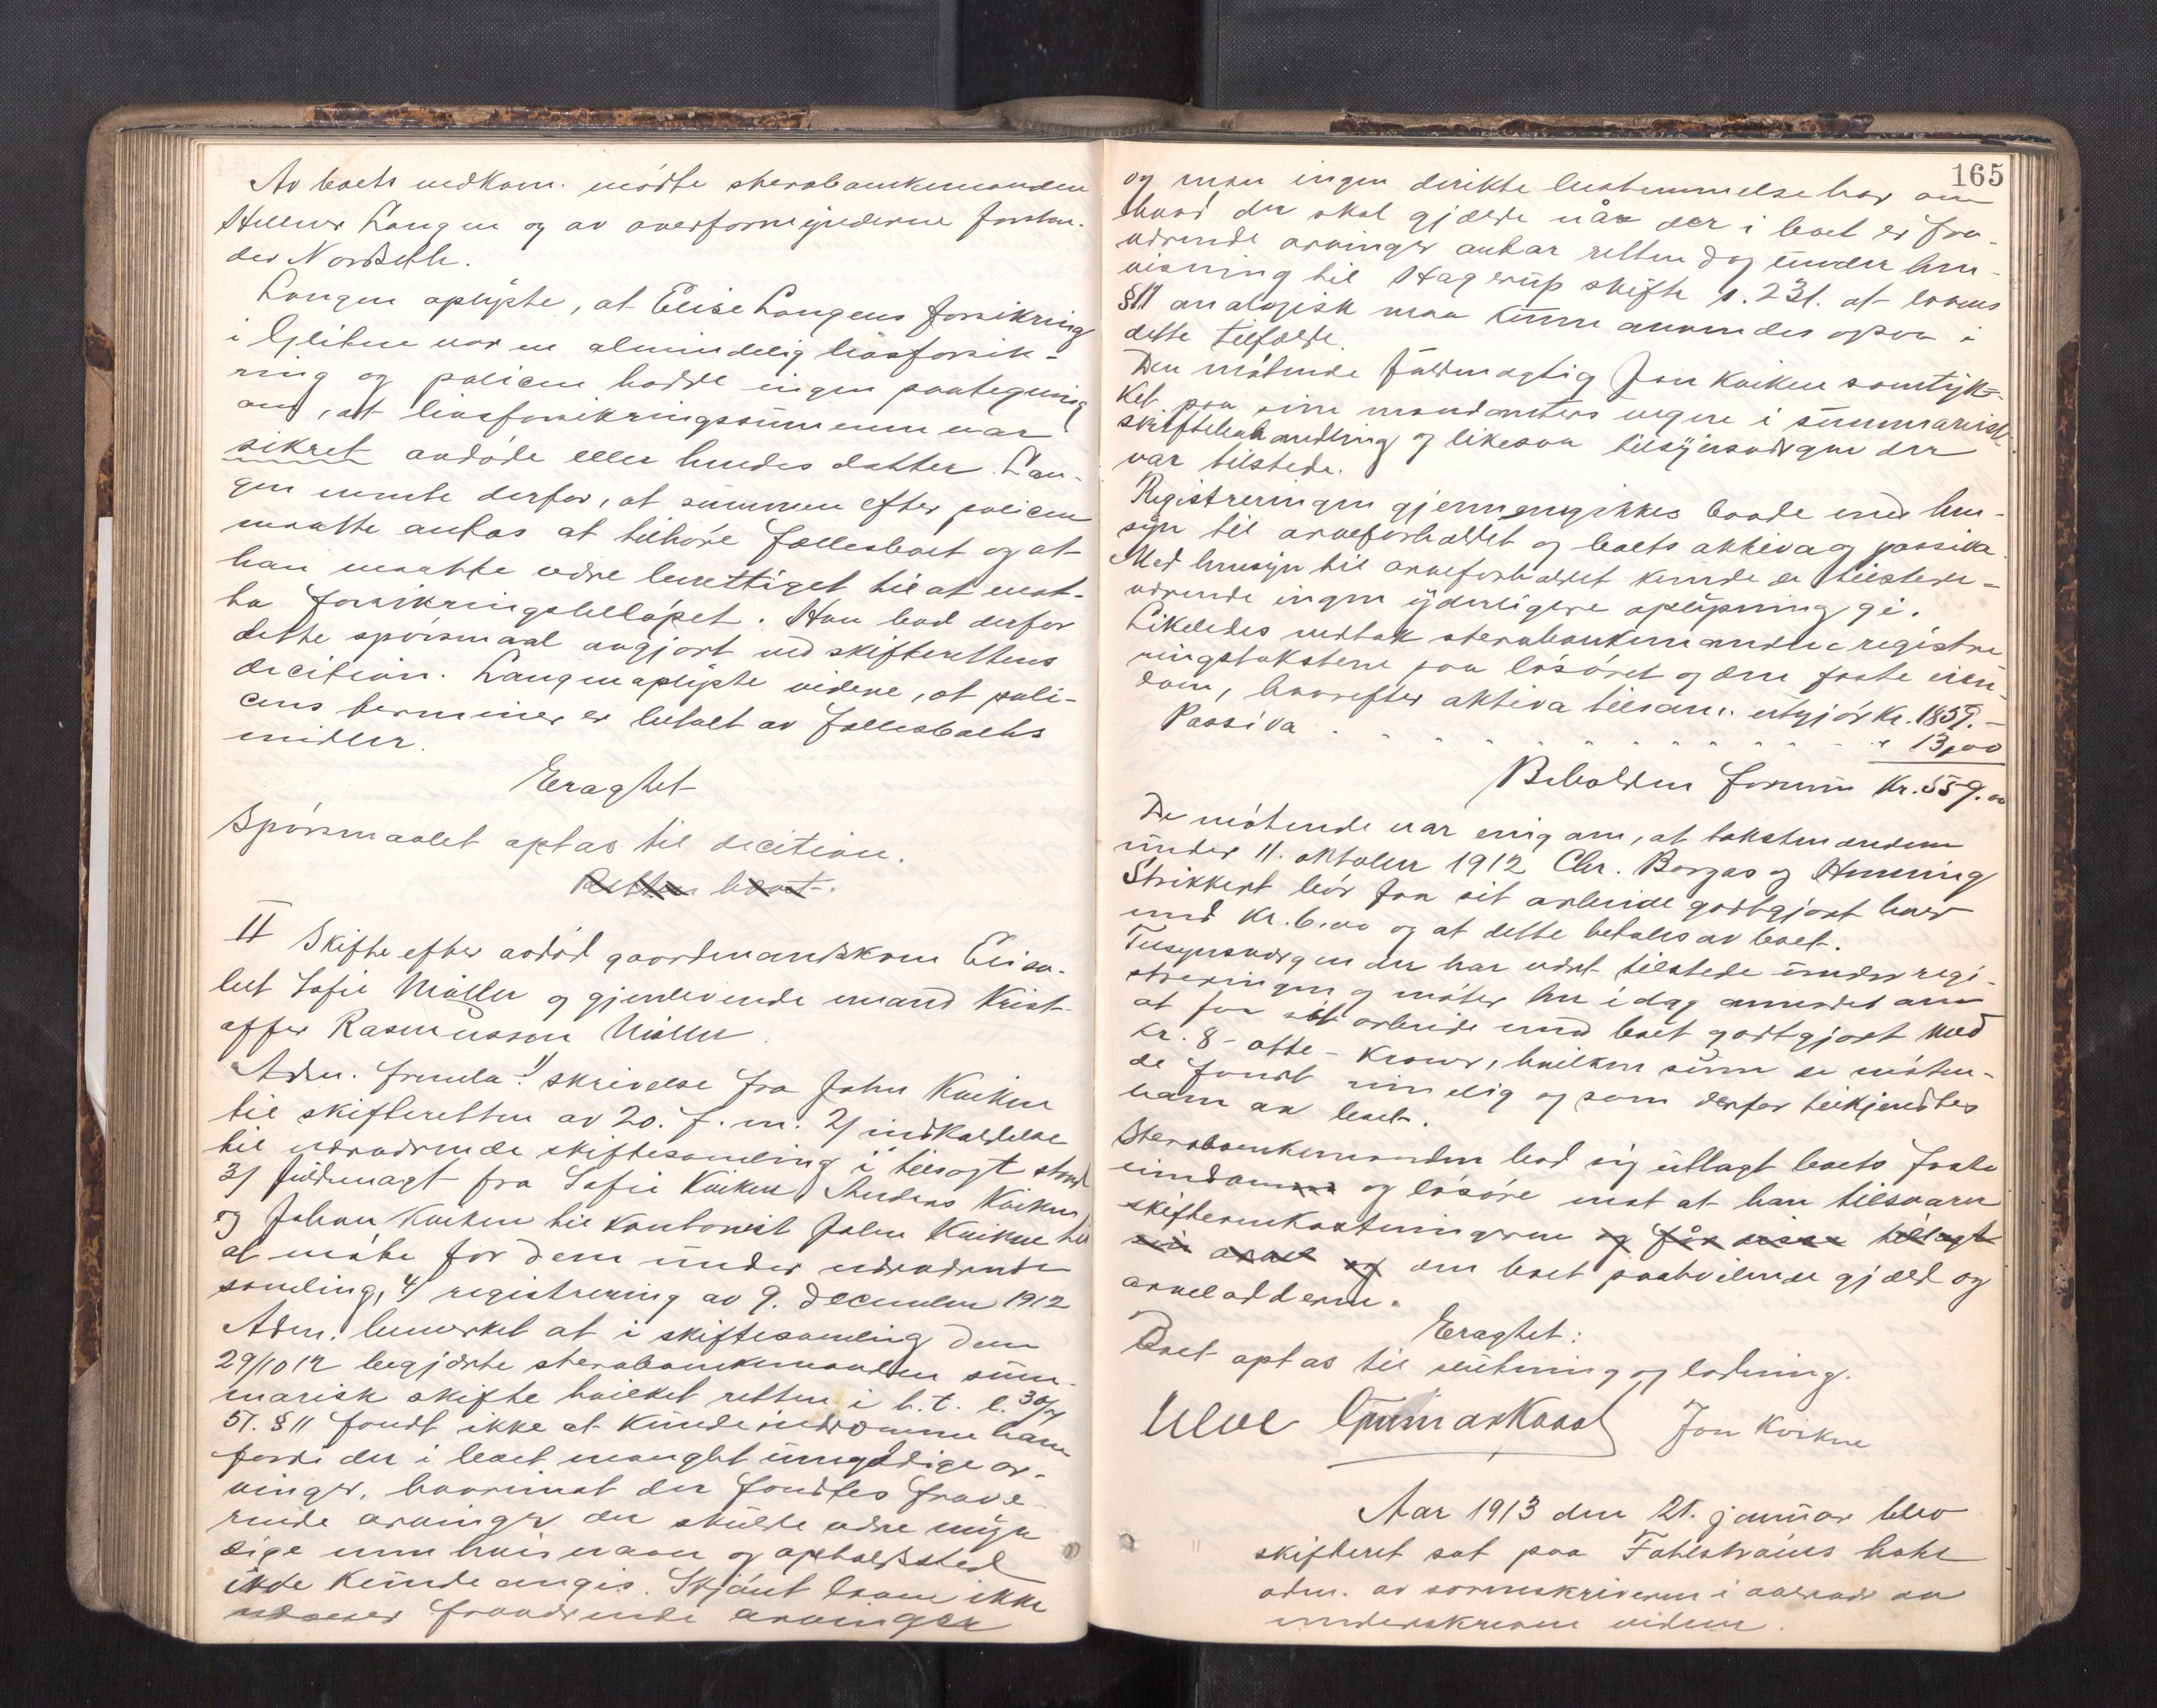 Av boets vedkom. mødte stervboenkemanden
Langen og av overformynderne forstan-
der Nordseth.
Langen oplyste, at Elise Langens forsikring
i Gjødtun var en almindelig livsforsik-
ring og policen hadde ingen paategning
om, at livsforsikringssummen var
sikret avdøde eller hendes datter. Lan-
gen mente derfor, at summen efter policen
maatte antas at tilhøre fællesboet og at
han maatte være berettiget til at mot-
ta forsikringsbeløpet. Han bad derfor
dette spørsmaal avgjort ved skifterettens
decition. Langen oplyste videre, at poli-
cens terminer er betalt av fællesboets
midler.
Eragtet
Spørsmaalet optas til decition.
Retten hævet.
II Skifte efter avdød gaardmandskone Elisa-
bet Sofie Møller og gjenlevende mand Krist-
offer Rasmusson Møller.
Adm. fremla: 1/ skrivelse fra John Kvikne
til skifteretten av 20. f. m. 2/ indkaldelse
til nærværende skiftesamling i tilsagt stand
3/ fuldmagt fra Sofie Kvikne, Anders Kvikne
og Johan Kvikne til kontorist John Kvikne til
at møte for dem under nærværende
samling, 4/ registrering av 9. december 1912
Adm. bemerket at i skiftesamling den
29/10 12 begjærte stervboenkemanden sum-
marisk skifte hvilket retten i h. t. l. 30/7
51. § 11 fandt ikke at kunde indrømme ham
fordi der i boet manglet umyndige ar-
vinger, hvorimot der fandtes fravæ-
rende arvinger der skulde være myn-
dige men hvis navn og opholdssted
ikke kunde angis. Skjønt loven ikke
nævner fraværende arvinger
165
og man ingen direkte bestemmelse har om
hvad der skal gjælde når der i boet er fra-
værende arvinger antar retten dog under hen-
visning til Hagerup skifte s. 231. at lovens
§ 11 analogisk maa kunne anvendes ogsaa i
dette tilfælde.
Den møtende fuldmægtig Jon Kvikne samtyk-
ket paa sine mandanters vegne i summarisk
skiftebehandling og likesaa tilsynsværgen der
var tilstede.
Registreringen gjennemgikkes baade med hen-
syn til arveforholdet og boets aktiva og passiva.
Med hensyn til arveforholdet kunde de tilstede-
værende ingen yderligere oplysning gi.
Likeledes vedtok stervboenkemanden registre-
ringstakstene paa løsøret og den faste eien-
dom, hvorefter aktiva tilsam. utgjør kr. 1859.-
Passiva . . . . . . . . . . . . . " 1300
Beholden formue kr. 559.00
De møtende var enig om, at takstmændene
under 11. oktober 1912 Chr. Borgas og Henning
Strikkert bør faa sit arbeide godtgjort hver
med kr. 6.00 og at dette betales av boet.
Tilsynsværgen der har været tilstede under regi-
streringen og møter her idag anmodet om
at faa sit arbeide med boet godtgjort med
kr. 8 - otte - kroner, hvilken sum de møten-
de fandt rimelig og som derfor tilkjendtes
ham av boet.
Stervboenkemanden bad sig utlagt boets faste
eiendom og løsøre mot at han tilsvarer
skifteomkostningerne og får sine tillagt
sin arvel og den boet paahvilende gjæld og
arvelodderne.
Eragtet:
Boet optas til slutning og lodning.
Jon Kvikne
Aar 1913 den 21. januar blev
skifteret sat paa Fahlstrøms hotel
adm. av sorenskriveren i overvær av
underskrevne vidner.